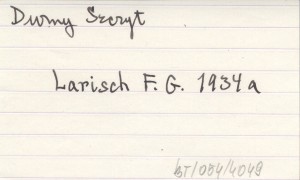 Dumy Szczyt
Larisch F. G. 1934a
bT/084/4048